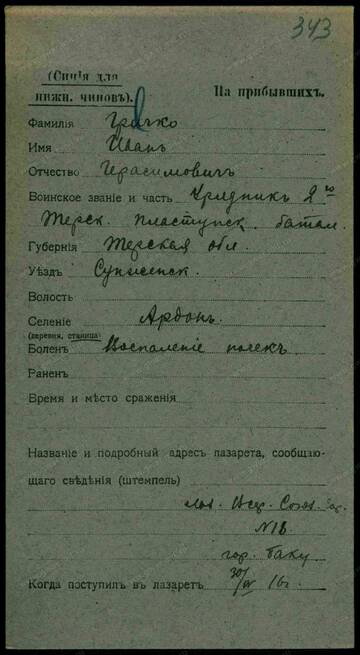 343
(Синія для
нижн. чиновъ).
На прибывшихъ.
Фамилія Грачко
Имя Иванъ
Отчество Герасимовичъ
Воинское званіе и часть Урядникъ 2го
Терск. пластунск. батал.
Губернія Терская обл.
Уѣздъ Сунженск.
Волость
Селеніе Ардонъ
(деревня, станица)
Боленъ Воспаленіе почекъ
Раненъ
Время и мѣсто сраженія
Названіе и подробный адресъ лазарета, сообщаю-
щаго свѣдѣнія (штемпель)
Лаз. Всер. Союз. Гор.
№18
гор. Баку
Когда поступилъ въ лазаретъ 30/IV 16г.